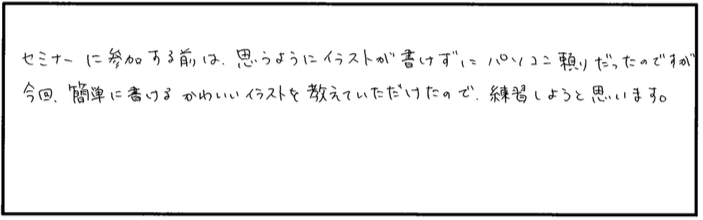 セミナーに参加する前は、思うようにイラストが書けずにパソコン頼りだったのですが
今回、簡単に書けるかわいいイラストを教えていただけたので、練習しようと思います。